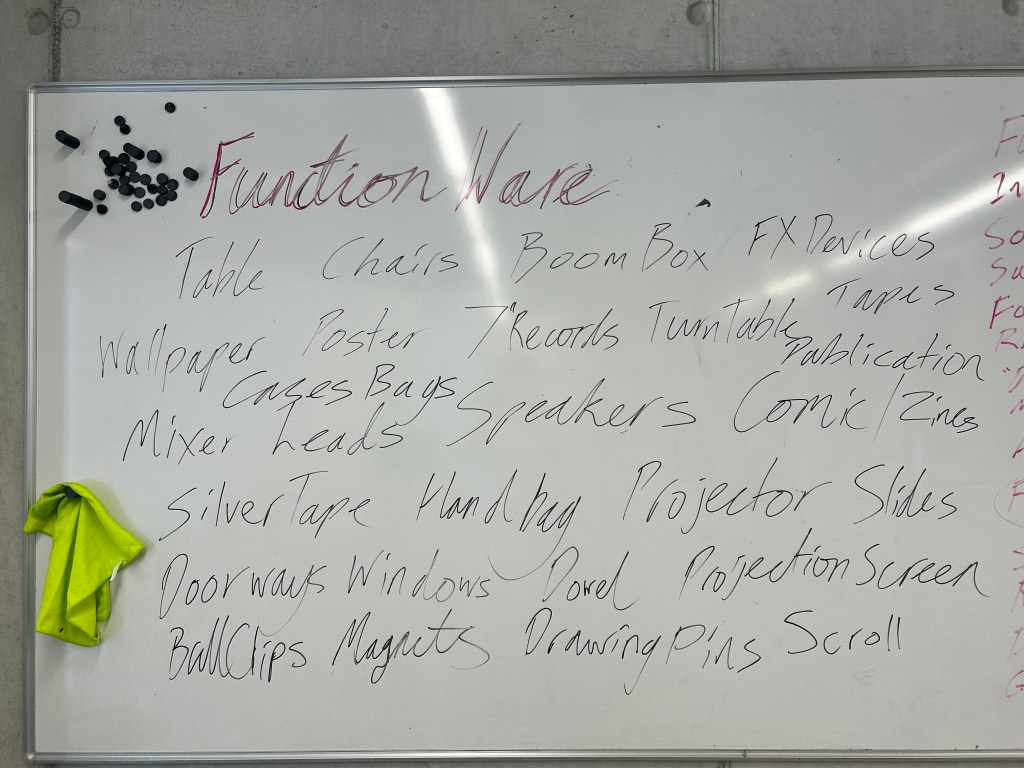 Function Ware
Table Chairs BoomBox FX Devices
Wallpaper Poster 7"Records TurnTable Tapes
Cases Bags Publication
Mixer Leads Speakers Comic/Zines
SilverTape Handbag Projector Slides
Doorways Windows Dowel Projection Screen
BallClips Magnets Drawing Pins Scroll